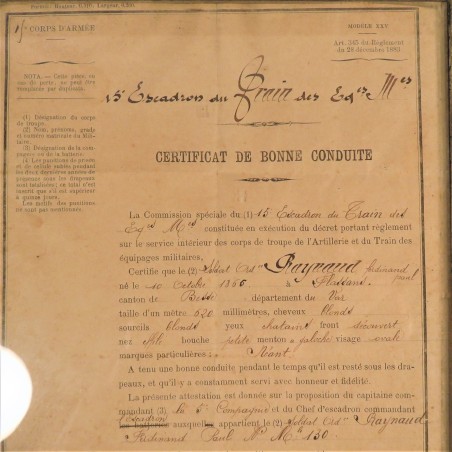 Format: Hauteur, 0,310; Largeur, 0,200.
15e CORPS D'ARMÉE
MODÈLE XXV
Art. 385 du Règlement
du 28 décembre 1883
NOTA. — Cette pièce, en
cas de perte, ne peut être
remplacée par duplicata.
15e Escadron du Train des Eqes Mres
(1) Désignation du corps
de troupe.
(2) Nom, prénoms, grade
et numéro matricule du Mili-
taire.
(3) Désignation de la compa-
gnie ou de la batterie.
(4) Les punitions de prison
et de cellule subies pendant
les deux dernières années de
présence sous les drapeaux
sont totalisées; ce total n'est
inscrit que s'il est supérieur
à quinze jours.
Les motifs des punitions
ne sont pas mentionnés.
CERTIFICAT DE BONNE CONDUITE
La Commission spéciale du (1) 15e Escadron du Train des
Eqes Mres constituée en exécution du décret portant règlement
sur le service intérieur des corps de troupe de l'Artillerie et du Train des
équipages militaires,
Certifie que le (2) Soldat Ordre Raynaud Ferdinand Paul
né le 10 Octobre 1866 à Flassans
canton de Besse département du Var
taille d'un mètre 620 millimètres, cheveux blonds
sourcils blonds yeux chatains front découvert
nez bouche petite menton à galoche visage ovale
marques particulières: Néant
A tenu une bonne conduite pendant le temps qu'il est resté sous les dra-
peaux, et qu'il y a constamment servi avec honneur et fidélité.
La présente attestation est donnée sur la proposition du capitaine com-
mandant (3) la 5e Compagnie et du Chef d'escadron commandant
l'escadron
les batteries auxquelles appartient le (2) Soldat Ordre Raynaud
Ferdinand Paul No Mle 130